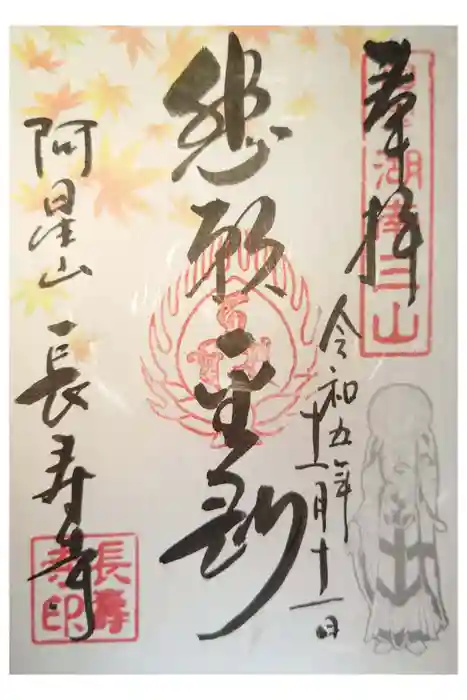 奉拝
湖南三山
令和五年
十一月十一日
悲願金剛
阿星山 長寿寺
長壽寺印